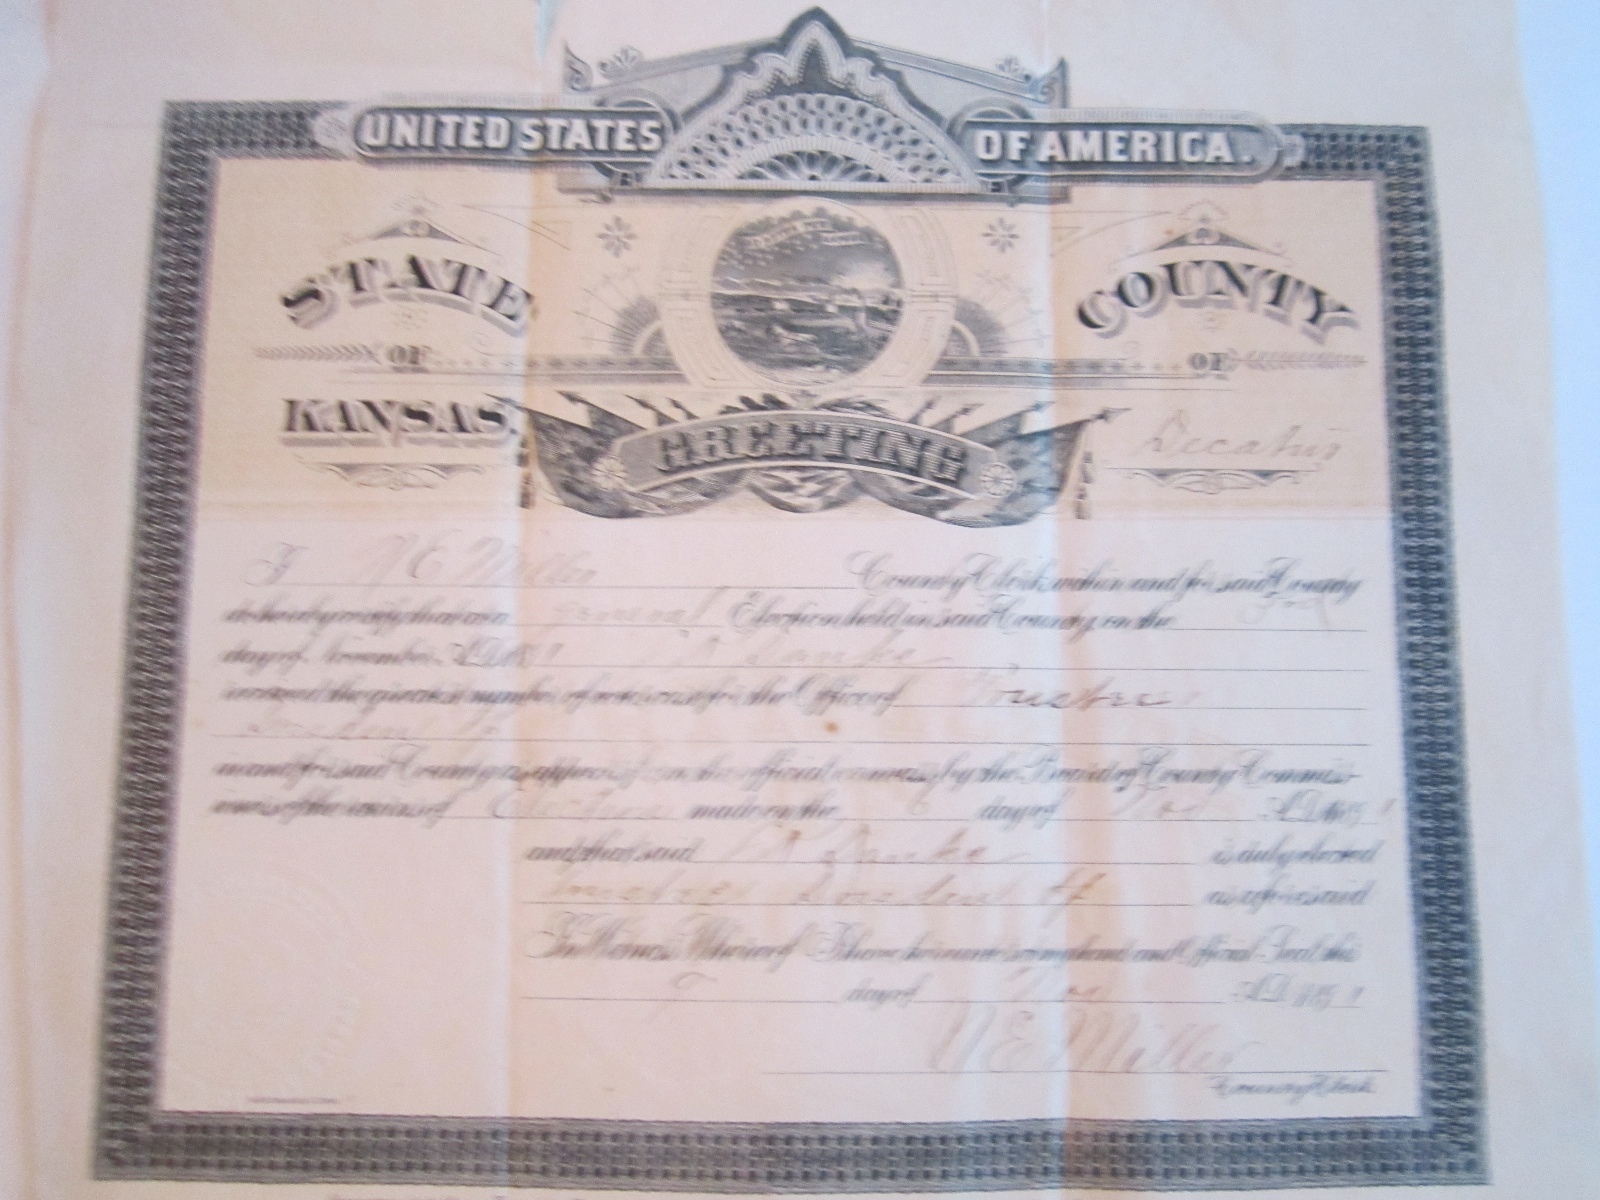 UNITED STATES OF AMERICA.
STATE OF KANSAS.
COUNTY OF Decatur
GREETING
I N E Miller County Clerk within and for said County
do hereby certify that at a general Election held in said County, on the 3rd
day of November A.D. 1891 Danke
received the greatest number of votes cast for the Office of Trustee
in and for said County as appears from the official canvass by the Board of County Commiss-
ioners of the returns of Elections made on the 6 day of Nov A.D. 1891
and that said Danke is duly elected
as aforesaid
In Witness Whereof I have hereunto set my hand and Official Seal this
day of Nov A.D. 1891
N E Miller
County Clerk